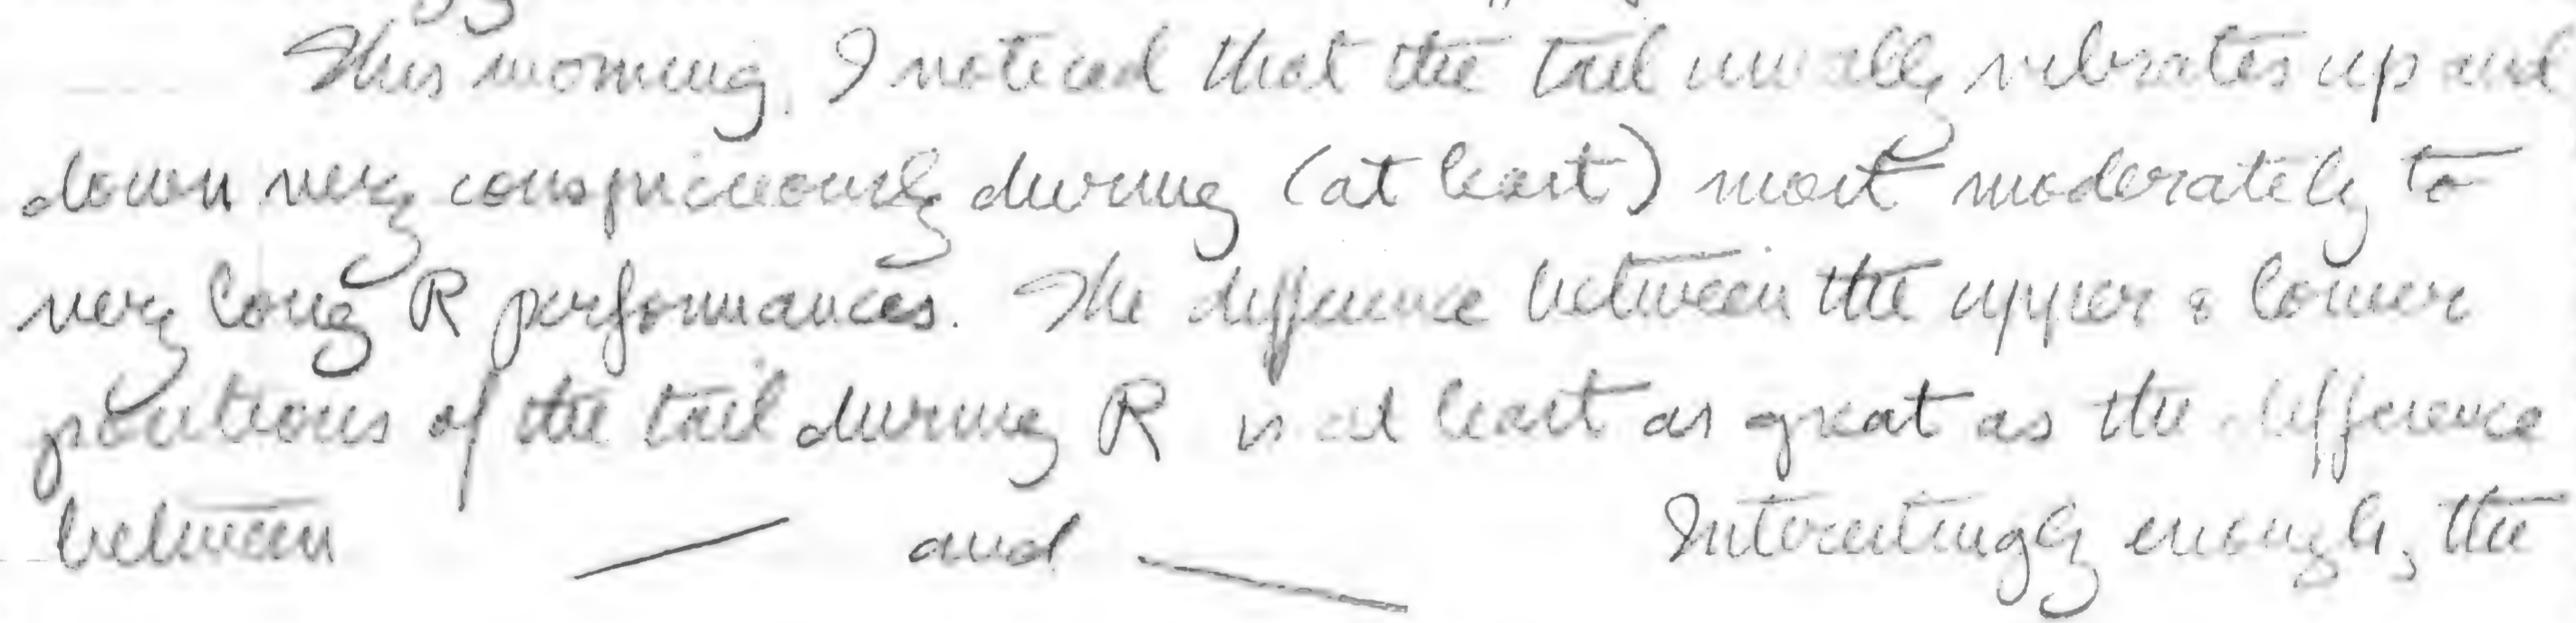 This morning, I noticed that the tail usually vibrates up and
down very conspicuously during (at least) most moderately to
very long R performances. The difference between the upper & lower
positions of the tail during R is at least as great as the difference
between and Interestingly enough, the